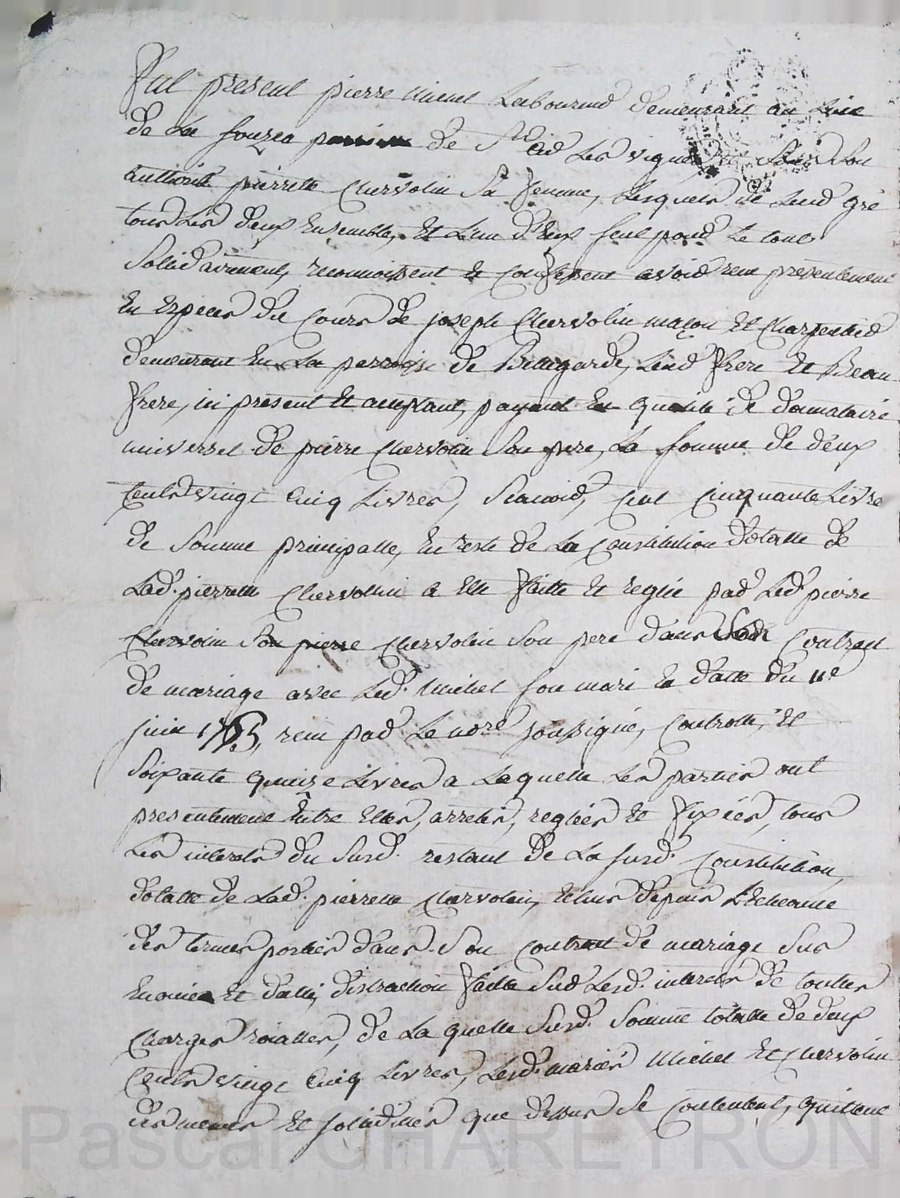 Fut présent pierre Michel Laboureur demeurant au Lieu
de La fouzea de St les vignes et sous son
authorité pierrette Chervolin Sa femme, Lesquels de Leur gré
tous Les deux Ensemble, et L'un d'eux seul pour Le tout
Solidairement, reconnoissent et confessent avoir reçu présentement
En Espèces du Cours de joseph Chervolin maçon et Charpentier
demeurant En La parroisse de Bellegarde, Leur frere et Beau
frere, ici present et acceptant, payant En qualité de donnataire
universel de pierre Chervolin Son pere, La somme de deux
Cents vingt Cinq Livres, Scavoir, Cent Cinquante Livres
de Somme principalle, En reste de La Constitution dotalle de
Lad. pierrette Chervolin a Elle faitte et reglée par Led. pierre
Chervolin Son pere dans Son Contrat
de mariage avec Led. Michel son mari En datte du 11e
juin reçu par Le nore soussigné, Controllé, et
Soixante quinze Livres a Laquelle Les parties ont
presentement Entre Elles, arretés, reglées et fixées, tous
Les interets du Surd. restant de La susd. Constitution
dotalle de Lad. pierrette Chervolin, Echus depuis L'Echeance
des termes portés dans Son Contrat de mariage Sus
Enoncé et datté, distraction faitte Sur Lesd. interets de toutes
Charges roialles, de La quelle Susd. Somme totalle de deux
Cents vingt Cinq Livres, Lesd. mariés Michel et Chervolin
des memes et solidités que dessus Se Contentent, quittent
Pascal CHAREYRON